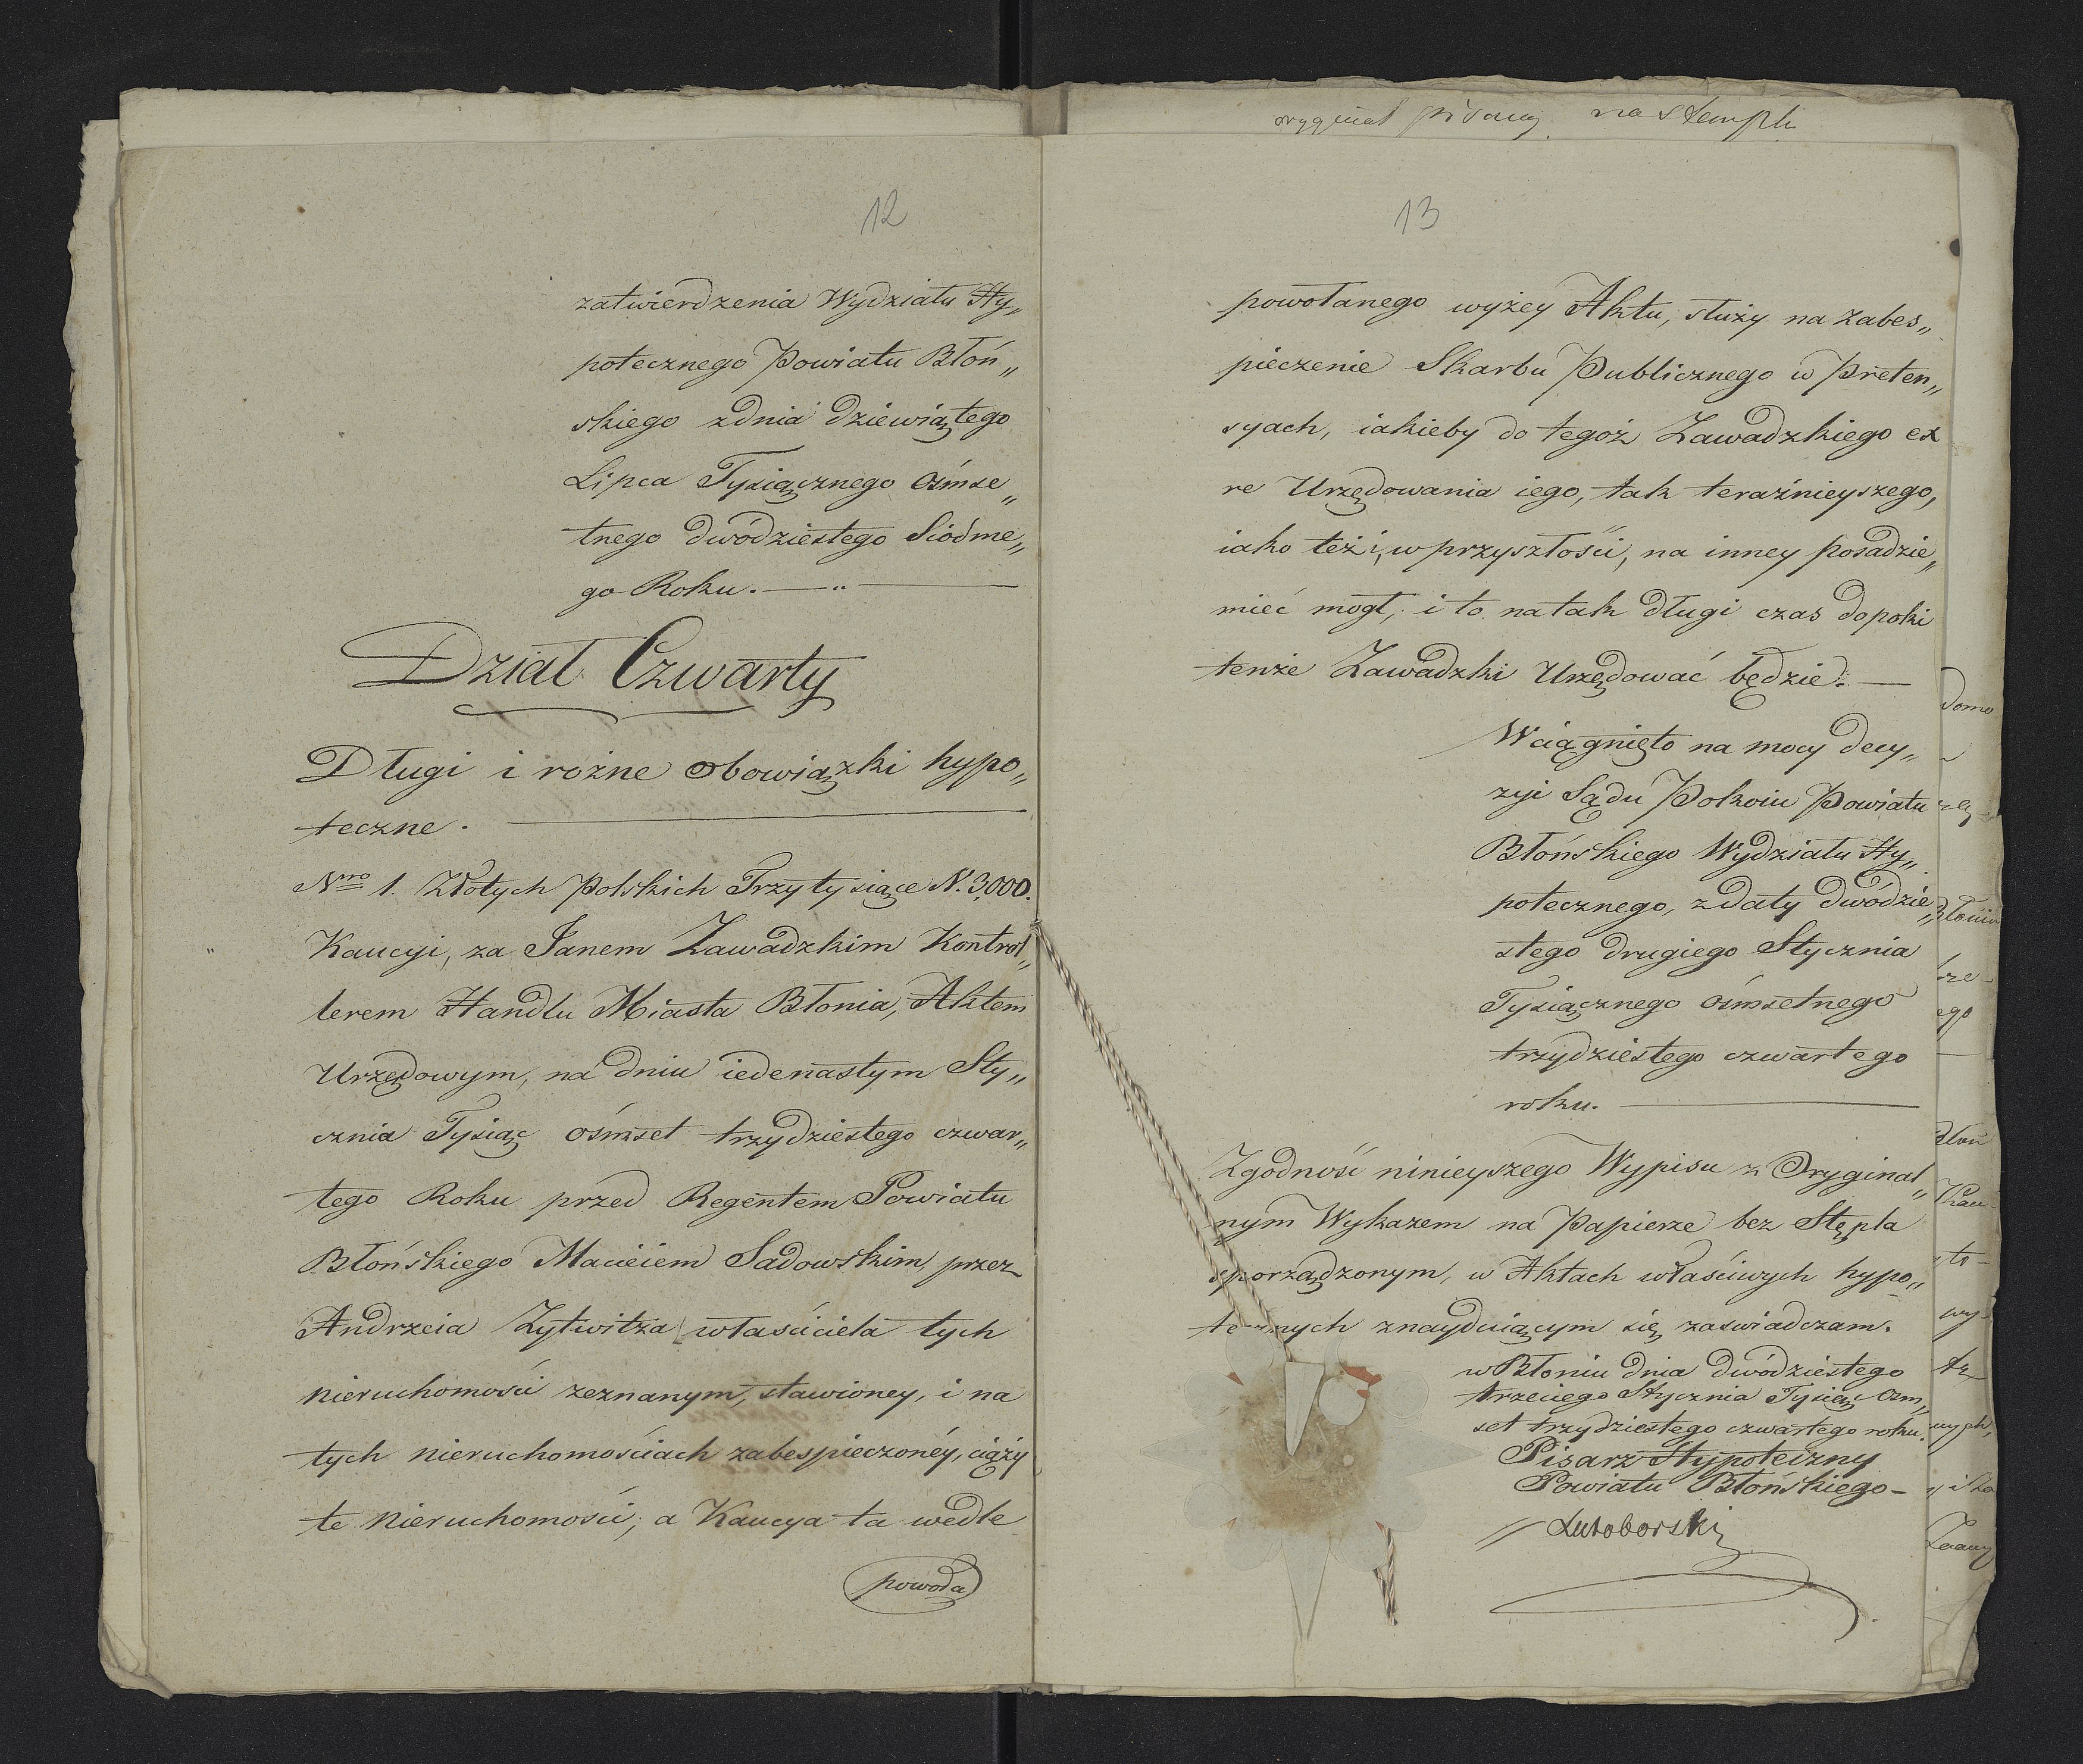 12
zatwierdzenia Wydziału Hy„
potecznego Powiatu Błoń„
skiego zdnia dziewiątego
Lipca Tysiącznego ośmse„
tnego dwódziestego Siódme„
go Roku. — „ —
Dział Czwarty
Długi i rożne obowiązki hypo„
teczne. —
Nro 1. Złotych Polskich Trzy tysiące N. 3,000.
Kaucyi, za Janem Zawadzkim Kontrol„
lerem Handlu Miasta Błonia, Aktem
Urzędowym, na dniu iedenastym Sty„
cznia Tysiąc ośmset trzydziestego czwar„
tego Roku przed Regentem Powiatu
Błońskiego Macieiem Sadowskim, przez
Andrzeia Zytwitza właściciela tych
nieruchomości zeznanym, stawioney, i na
tych nieruchomościach zabespieczonéy, ciąży
te nieruchomości; a Kaucya ta wedle
powoła
oryginał pisany na stemplu
13
powołanego wyżey Aktu, służy na zabes„
pieczenie Skarbu Publicznego w Preten„
syach, iakieby do tegoż Zawadzkiego ex
re Urzędowania iego, tak teraźnieyszego,
iako też i, w przyszłości, na inney posadzie„
mieć mogł, i to na tak długi czas dopoki
tenże Zawadzki Urzędować będzie. —
Wciągnięto na mocy decy„
zyi Sądu Pokoiu Powiatu
Błońskiego Wydziału Hy„
potecznego, z daty dwódzie„
stego drugiego Stycznia
Tysiącznego ośmsetnego
trzydziestego czwartego
roku. —
Zgodność ninieyszego Wypisu z Oryginal„
nym Wykazem na Papierze bez Stępla
sporządzonym, w Aktach właściwych hypo„
tecznych znayduiącym się zaświadczam.
w Błoniu dnia dwódziestego
trzeciego Stycznia Tysiąc ośm„
set trzydziestego czwartego roku.
Pisarz Hypoteczny
Powiatu Błońskiego –
Lutoborski